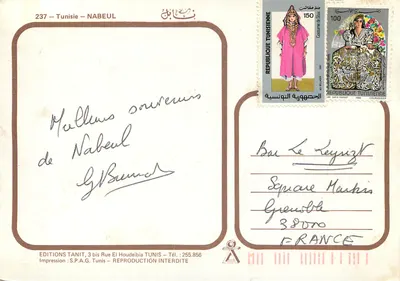 237 - Tunisie - NABEUL
نابل
REPUBLIQUE TUNISIENNE
150
الجمهورية التونسية
100
REPUBLIQUE TUNISIENNE
Meilleurs souvenirs
de Nabeul
Bar Le
Square
Grenoble
38000
FRANCE
EDITIONS TANIT, 3 bis Rue El Houdeibia TUNIS - Tél. : 255.858
Impression : S.P.A.G. Tunis - REPRODUCTION INTERDITE